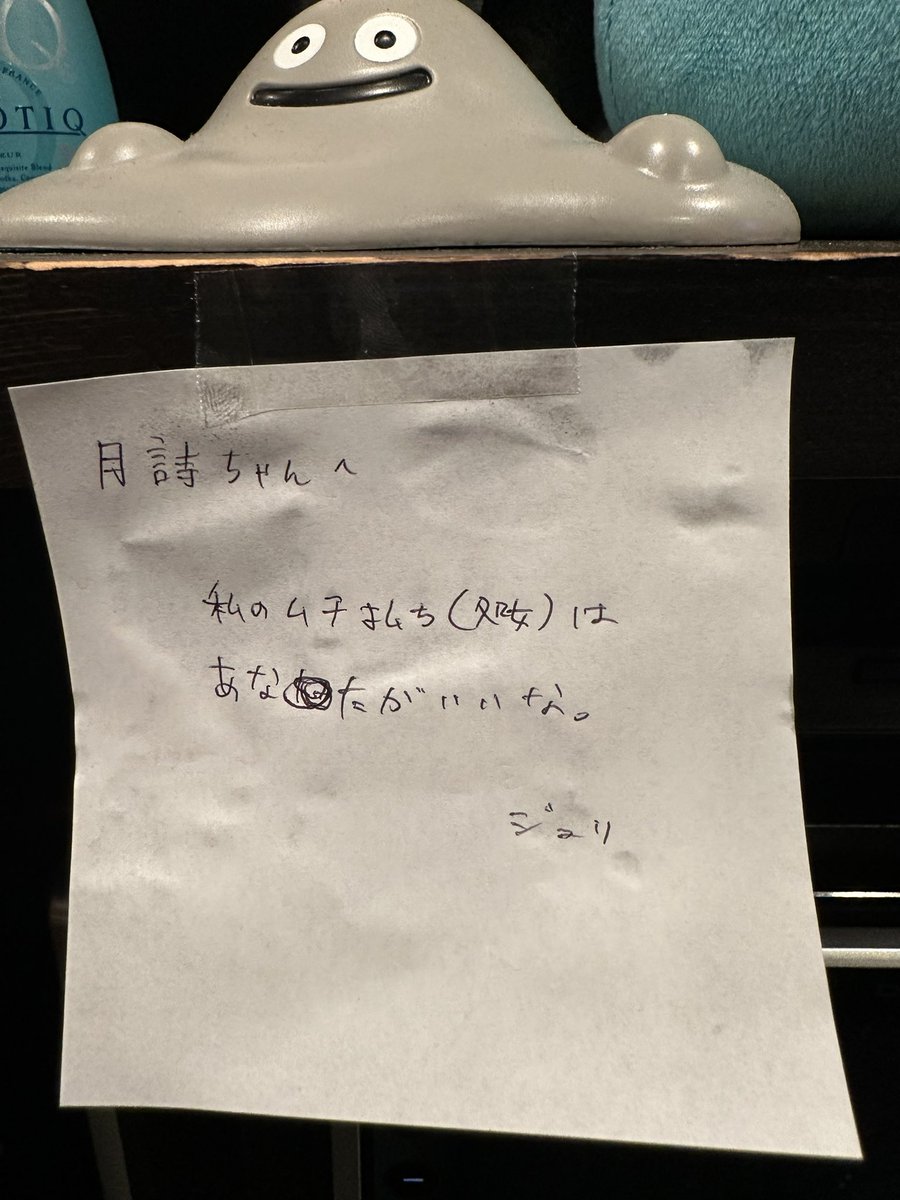 FRANCE
OTIQ
月詩ちゃんへ
私のムチ打ち(処女)は
あなたがいいな。
ジュリ